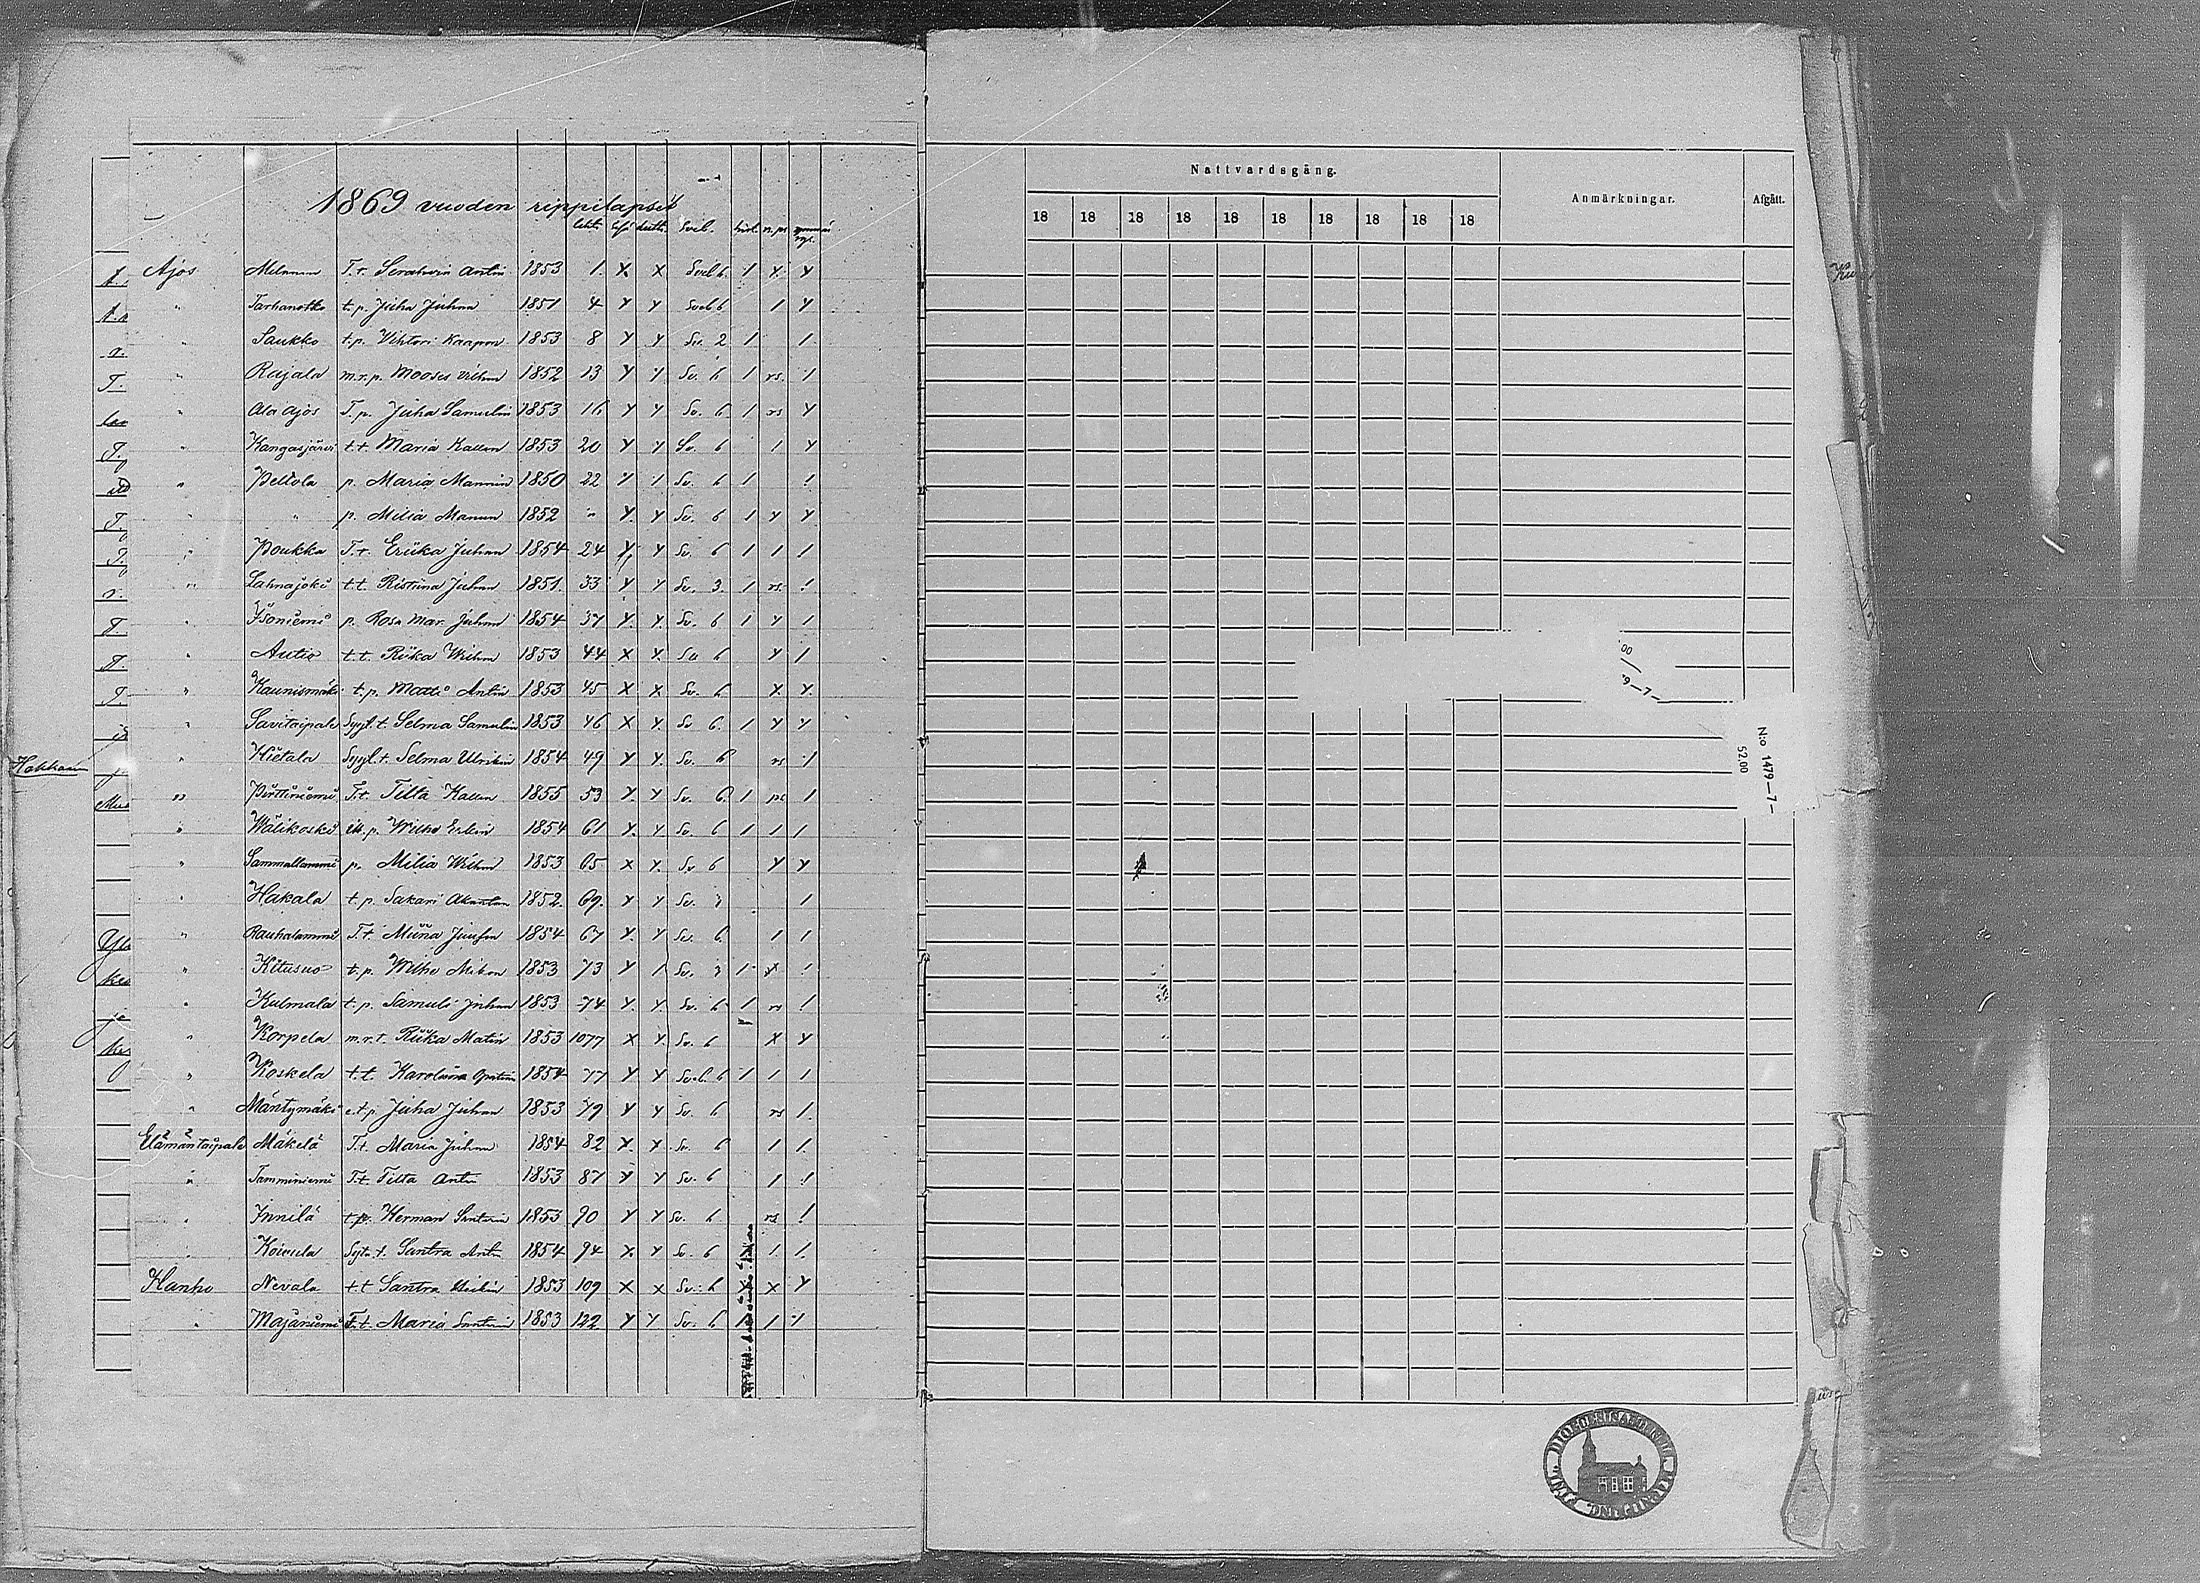 1869 vuoden rippilapset
lehti Sveb.
Ajos T.t. Serahvia Antin 1853 1. x x Sveb 6 1 y. y
" Tarhanotko t.p. Juha Juhan 1851 4 y y Sveb 6 1 y
" Saukko t.p. Vihtori Kaapon 1853 8 y y Sv. 2 1 1
" Rajala m.r.p. Mooses Vilhm 1852 13 y y Sv. 6 1 rs. 1
" Ala Ajos T.p. Juha Samulin 1853 16 y y Sv. 6 1 rs y
" Kangasjärvi t.t. Maria Kallen 1853 20 y y Sv. 6 1 y
" Peltola p. Maria Mannin 1850 22 y 1 Sv. 6 1 1
" " p. Milia Manun 1852 " y. y Sv. 6 1 y y
" Poukka T.t. Eriika Juhan 1854 24 y y Sv. 6 1 1 1
" Lahnajoki t.t. Ristiina Juhan 1851. 33 y y Sv. 3 1 rs. 1
" Isoniemi p. Rosa Mar. Juhan 1854 37 y. y. Sv. 6 1 y 1
" Autio t.t. Riika Wilhm 1853 44 x y. Sv 6 y 1
" Kaunismäki t.p. Matti Antin 1853 45 x x Sv. 6 x y.
" Savitaipale Syyt.t. Selma Samulin 1853 46 x y. Sv 6. 1 y y
" Hietala Syyt.t. Selma Ulrikin 1854 49 y y. Sv. 6 rs 1
" Pirttiniemi T.t. Tilta Kallen 1855 53 y. y Sv. 6. 1 rs 1
" Wälikoski itt.p. Wilho Erkin 1854 61 y. y Sv. 6 1 1 1
" Sammallammi p. Milia Wilhm 1853 65 x y. Sv 6 y y
" Hakala t.p. Sakari 1852. 69. y y Sv. 1
" Rauhalammi T.t. Miina Juusfin 1854 67 y. y Sv. 6. 1 1
" Kitusuo t.p. Wilho Mikon 1853 73 y 1 Sv. 1 x 1
" Kulmala t.p. Samuli Juhan 1853 74 y. y. Sv. 6 1 rs 1
" Korpela m.r.t. Riika Matin 1853 1077 x y. Sv. 6 x y
" Koskela t.t. Karoliina 1854 77 y y Sveb. 6 1 1 1
" Mäntymäki e.t.p. Juha Juhan 1853 79 y y Sv. 6 rs 1.
Elämäntaipale Mäkelä T.t. Maria Juhan 1854 82 y. y Sv. 6 1 1.
" Tamminiemi T.t. Tilta Antin 1853 87 y y Sv. 6 1 1
" Innilä t.p. Herman Santerin 1853 90 y y Sv. 6 rs 1
" Koivula Syt. t. Santra Antin 1854 94 y. y Sv. 6 1 1.
Hanho Nevala t.t Santra Heikin 1853 109 x x Sv. 6 x y
" Majaniemi T.t. Maria Santerin 1853 122 y y Sv. 6 1 1 1
Nattvardsgång.
18 18 18 18 18 18 18 18 18 18
Anmärkningar.
Afgått.
N:o 1479—7—
52.00